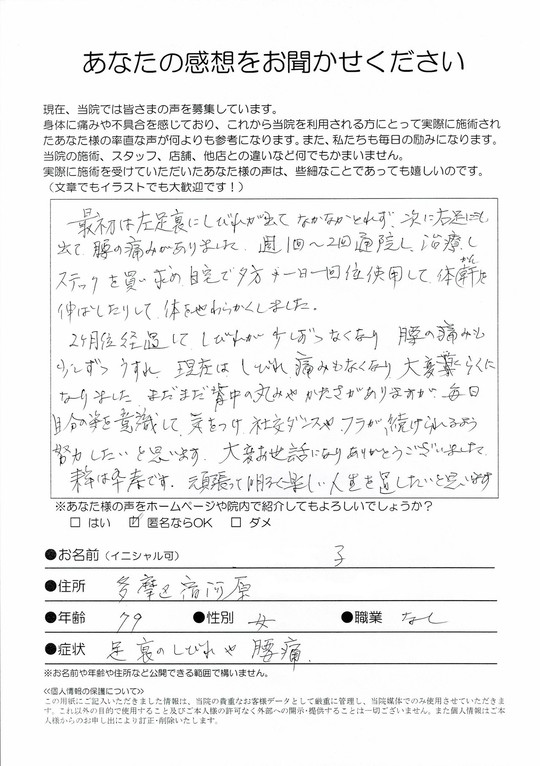 あなたの感想をお聞かせください
現在、当院では皆さまの声を募集しています。
身体に痛みや不具合を感じており、これから当院を利用される方にとって実際に施術され
たあなた様の率直な声が何よりも参考になります。また、私たちも毎日の励みになります。
当院の施術、スタッフ、店舗、他店との違いなど何でもかまいません。
実際に施術を受けていただいたあなた様の声は、些細なことであっても嬉しいのです。
（文章でもイラストでも大歓迎です！）
最初は左足裏にしびれが出て なかなかとれず 次に右足にも
出て 腰の痛みがありました 週1回〜2回通院し、治療し
ステックを買い求め 自宅で夕方 一日一回位使用して 体幹を
伸ばしたりして 体をやわらかくしました。
2ヶ月位経過して しびれが少しずつなくなり 腰の痛みも
少しずつうすれ 現在は しびれ 痛みもなくなり 大変楽らくに
なりました まだまだ背中の丸みや かたさがありますが 毎日
自分の姿を意識して 気をつけ 社交ダンスや フラが 続けられるよう
努力したいと思います 大変お世話になりありがとうございました
来年は卒寿です。頑張って明るく楽しい人生を過したいと思います
※あなた様の声をホームページや院内で紹介してもよろしいでしょうか？
□ はい ☑ 匿名ならOK □ ダメ
●お名前（イニシャル可） 子
●住所 多摩区宿河原
●年齢 79 ●性別 女 ●職業 なし
●症状 足裏のしびれや 腰痛
※お名前や年齢や住所など公開できる範囲で構いません。
≪個人情報の保護について≫
この用紙にご記入いただきました情報は、当院の貴重なお客様データとして厳重に管理し、当院媒体でのみ使用させていただきま
す。これ以外の目的で使用すること及びご本人様の許可なく外部への開示・提供することは一切ございません。また個人情報はご本
人様からのお申し出により訂正・削除いたします。